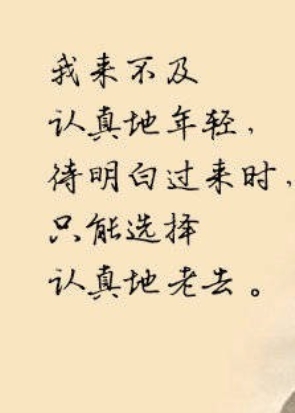 我来不及
认真地年轻，
待明白过来时，
只能选择
认真地老去。